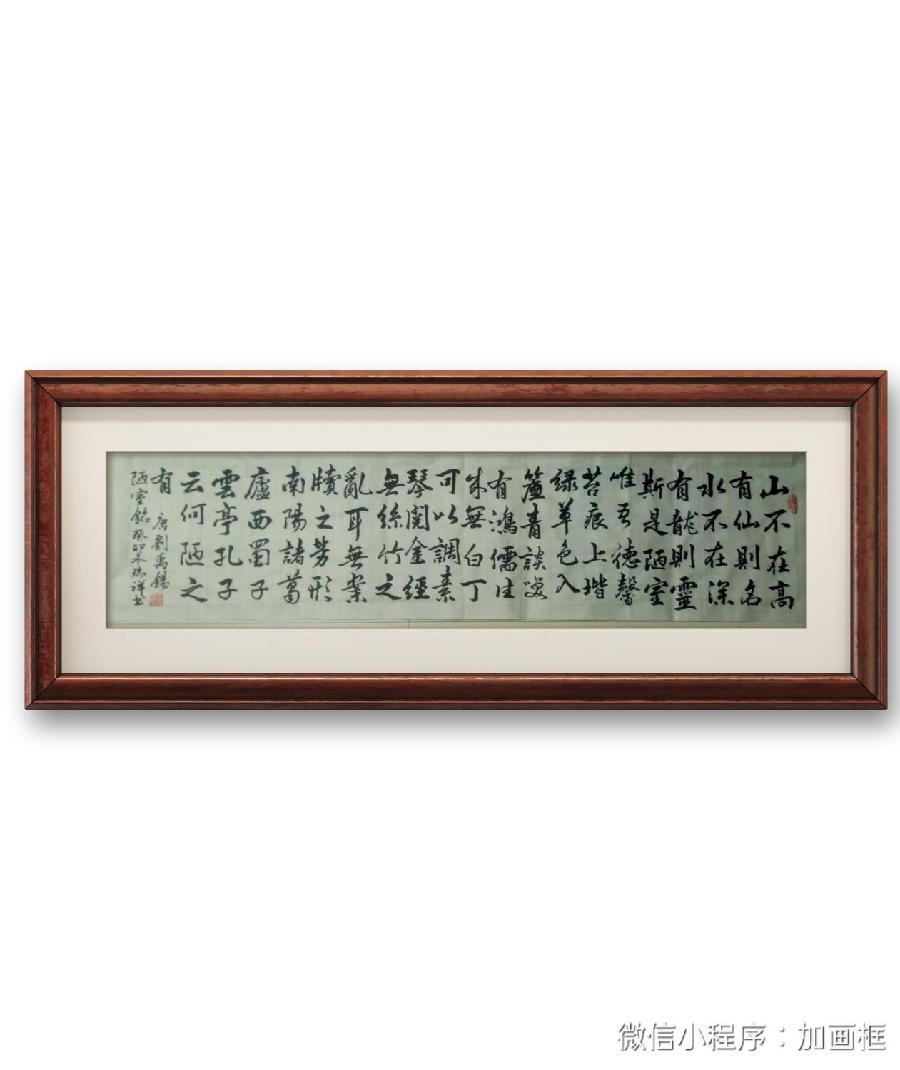 山不在高
有仙則名
水不在深
有龍則靈
斯是陋室
唯吾德馨
苔痕上堦
绿草色入
簾青談笑
有鴻儒往
来無白丁
可以調素
琴閱金經
無絲竹之
亂耳無案
牘之勞形
南陽諸葛
廬西蜀子
雲亭孔子
云何陋之
有 唐劉禹錫
陋室銘癸卯冬瑞祥书
微信小程序：加画框